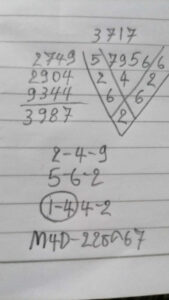 3717
2749 5 7 9 5 6 6
2904 2 4 2
9344 6 6
3987 2
2-4-9
5-6-2
1-4 4-2